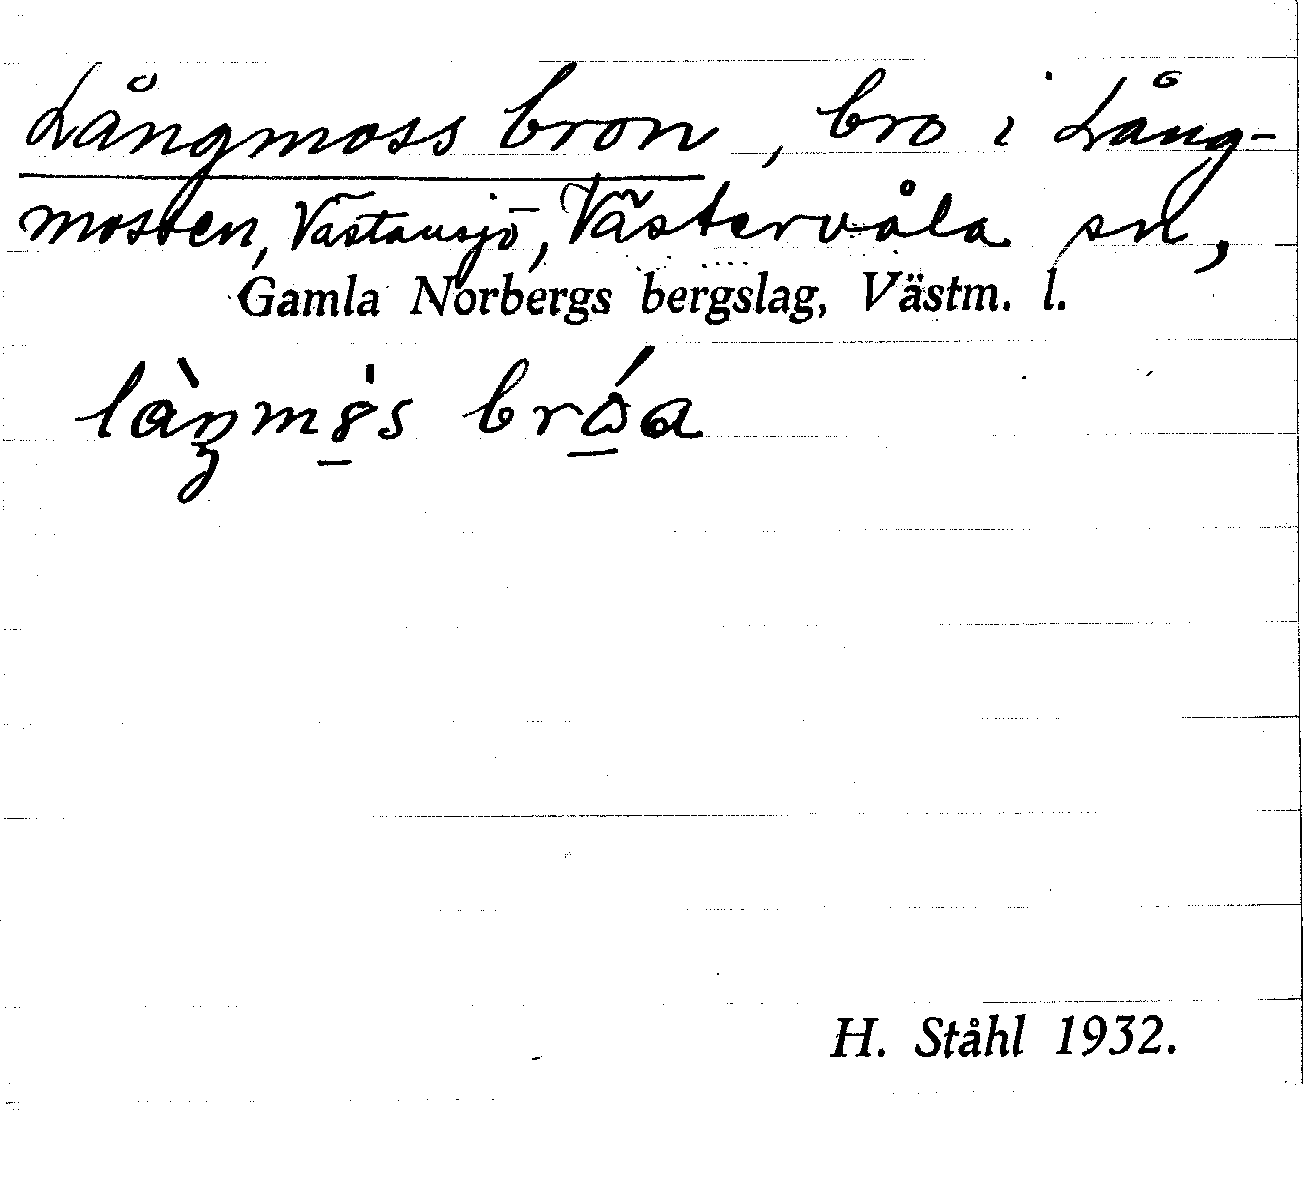 Långmossbron, bro i Lång-
mossen, Västansjö, Västervåla sn,
Gamla Norbergs bergslag, Västm. l.
H. Ståhl 1932.